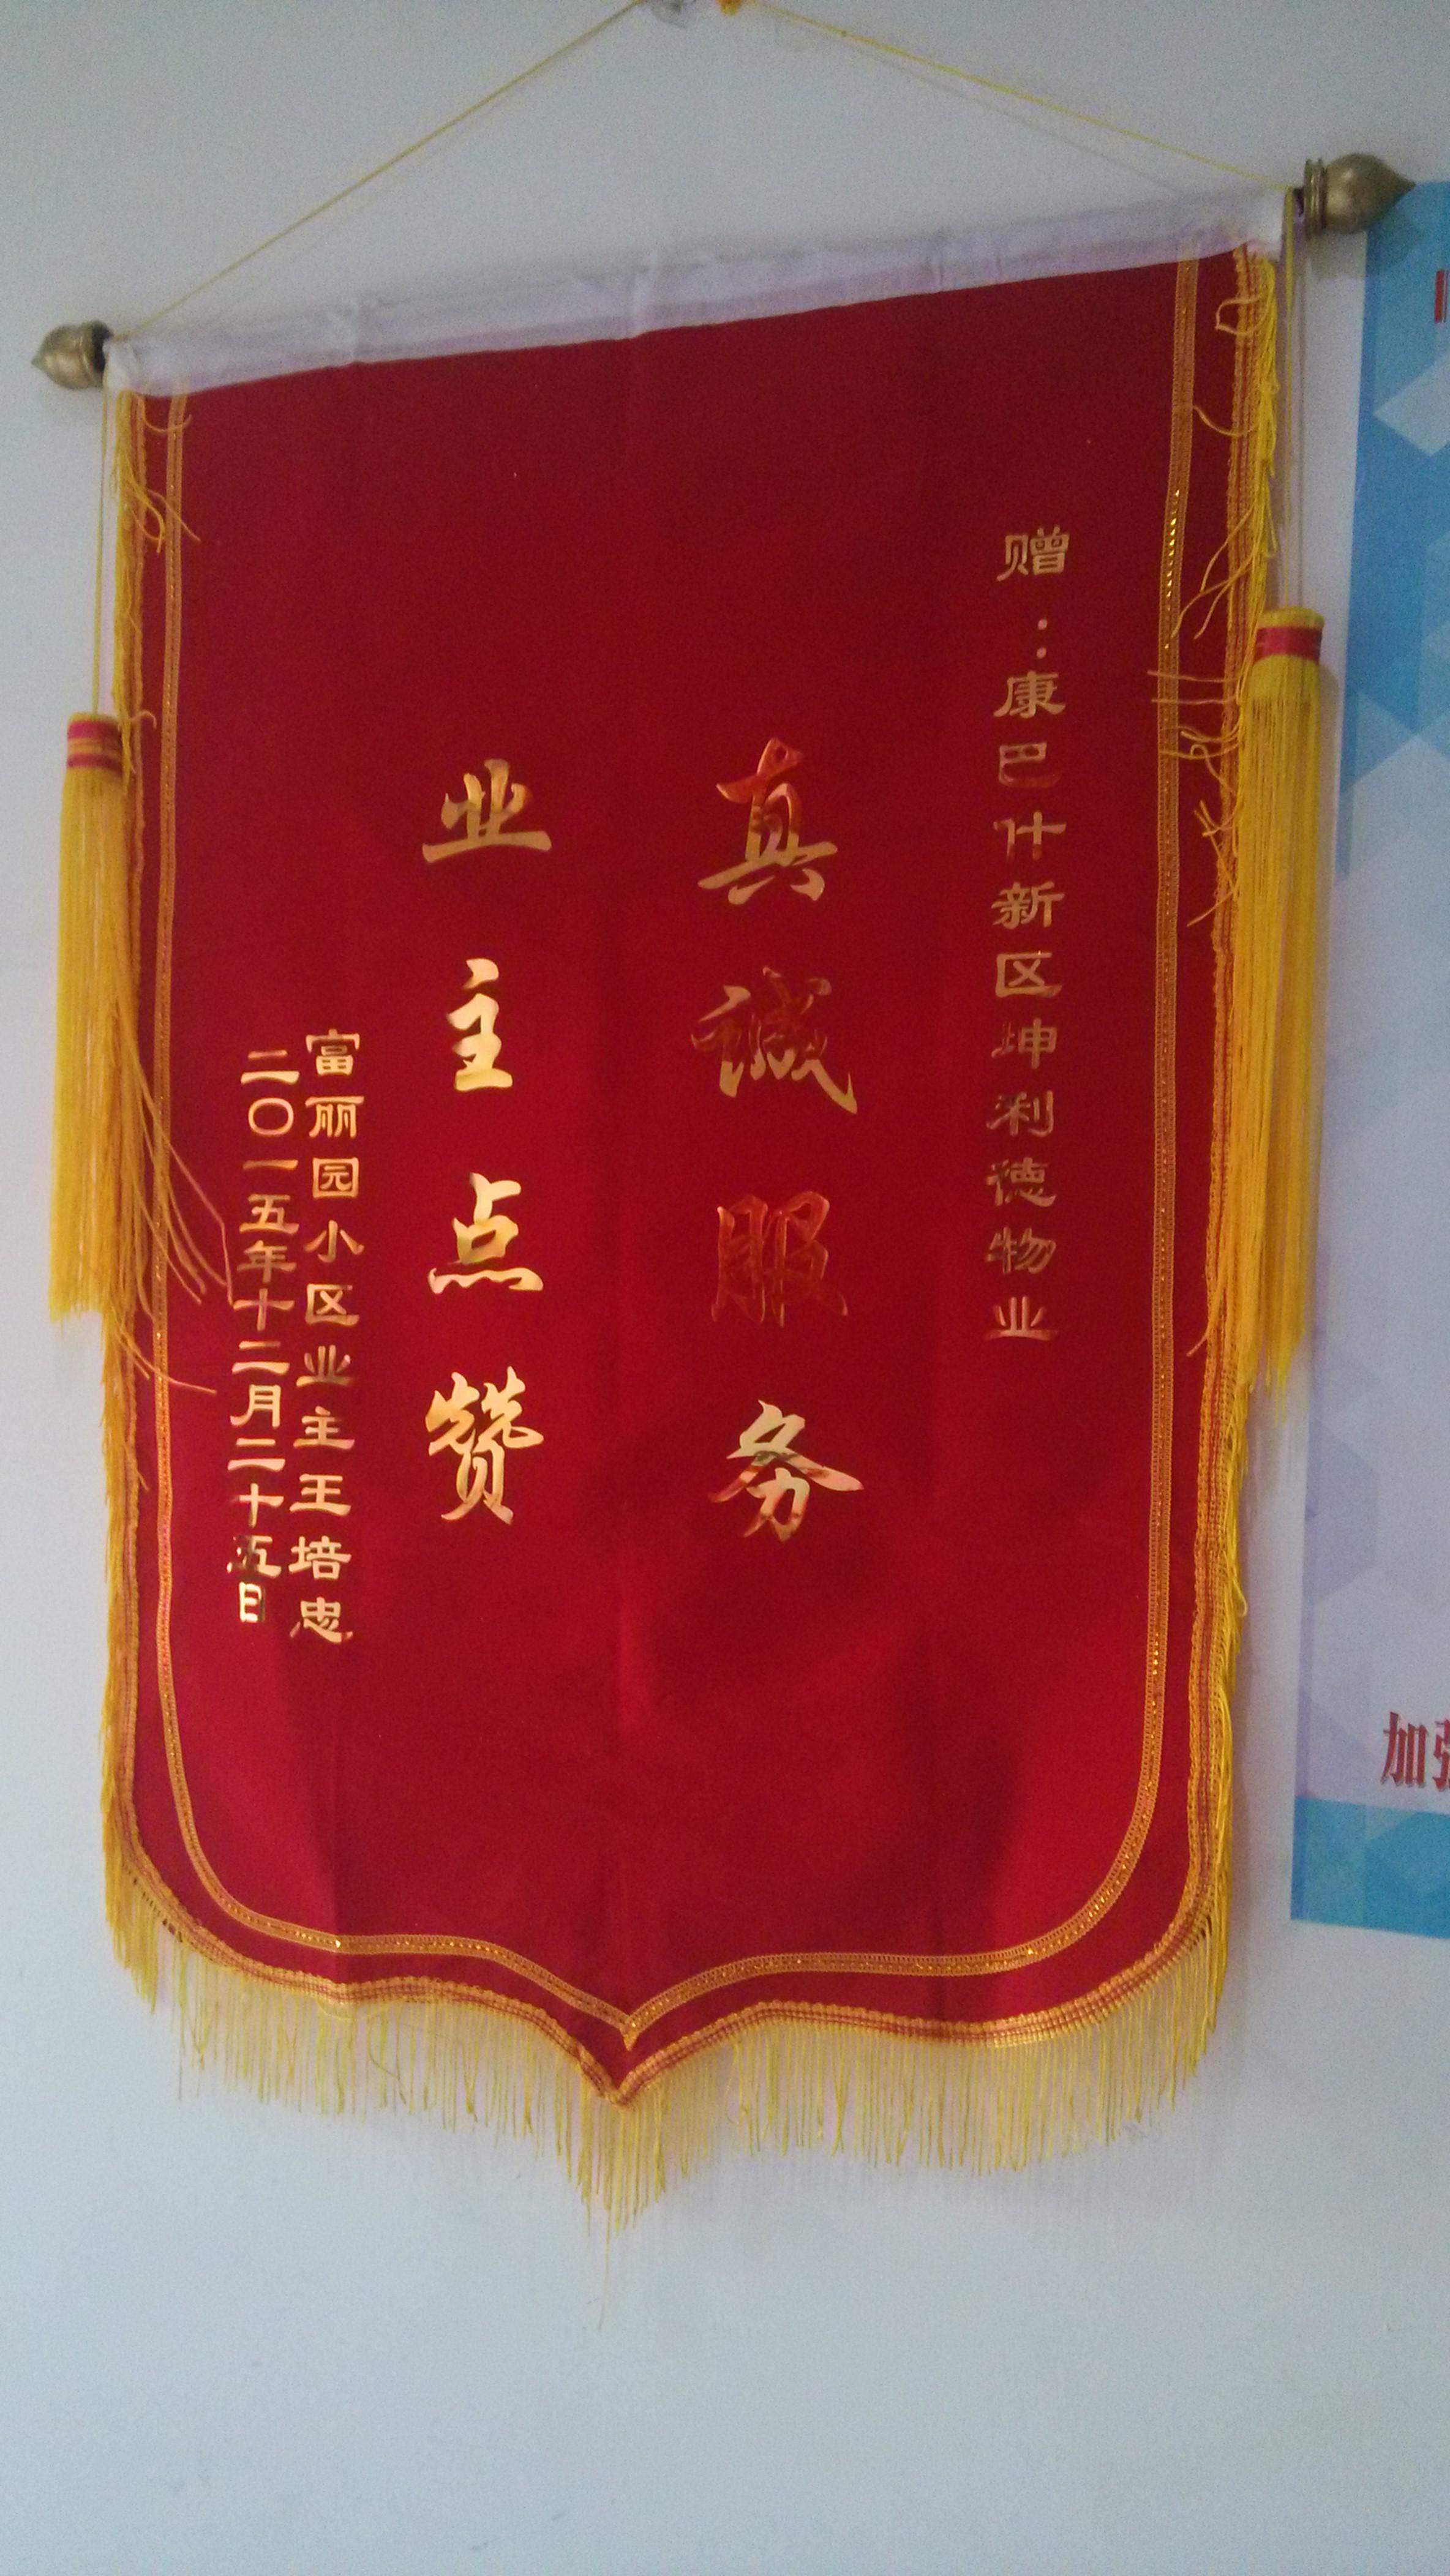 赠:康巴什新区坤利德物业
真诚服务
业主点赞
富丽园小区业主王培忠
二〇一五年十二月二十五日
加强